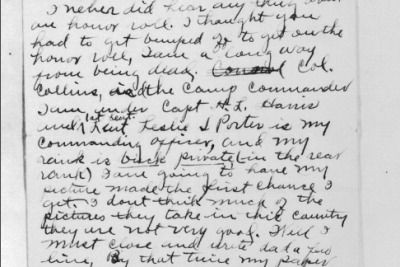 I never did hear any thing about
an honor roll. I thought you
had to get bumped off to get on the
honor roll, I am a long way
from being dead. Col.
Collins, is the Camp Commander
I am under Capt H. L. Harris
and 1st Lieut. Leslie S Porter is my
commanding officer, and my
rank is buck private (in the rear
rank) I am going to have my
picture made the first chance I
get. I dont think much of the
pictures they take in this country
they are not very good. Well I
must close and write dad a few
line, By that time my paper